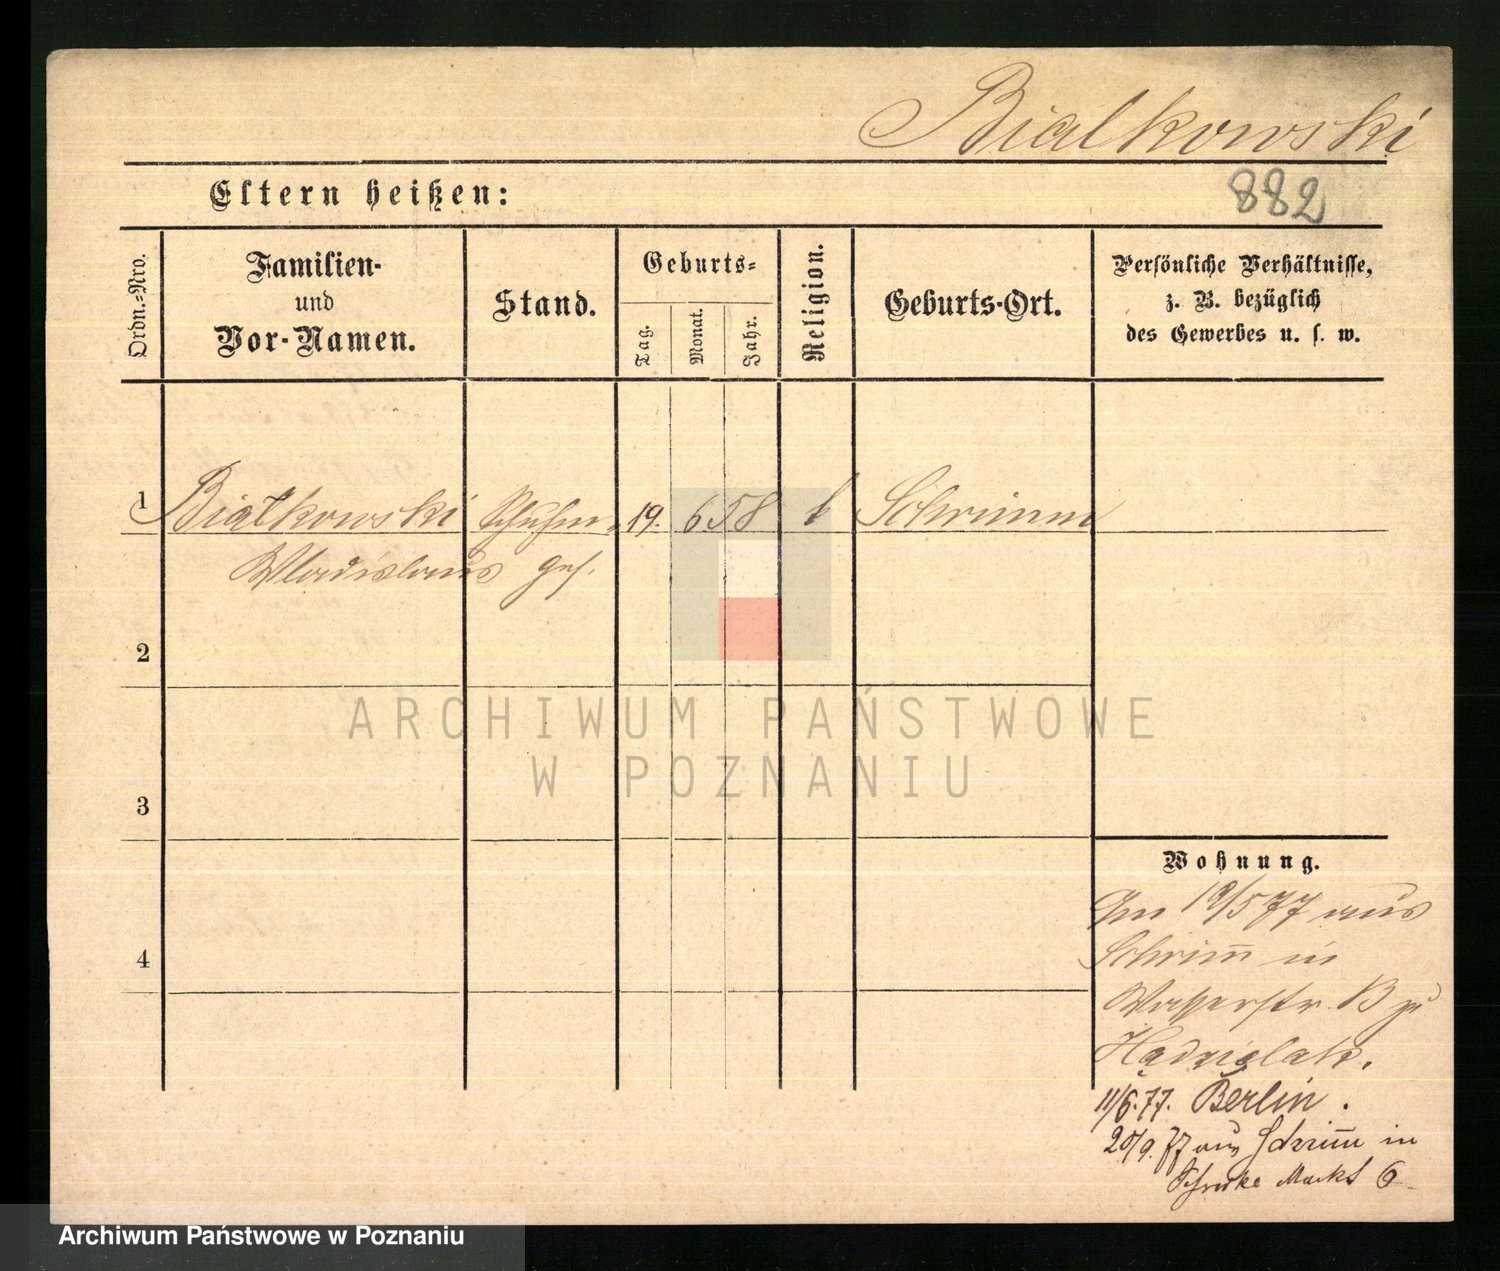 Bialkowski
882
Eltern heißen:
Ordn.-Nro.
Familien-
und
Vor-Namen.
Stand.
Geburts-
Tag.
Monat.
Jahr.
Religion.
Geburts-Ort.
Persönliche Verhältnisse,
z. B. bezüglich
des Gewerbes u. s. w.
1 Bialkowski Schuhm. 19. 6 58 k Schrimm
Wladislaus ges.
2
3
4
Wohnung.
Am 19/5 77 aus
Schrim̅ in
Wasserstr. B zu
11/6. 77. Berlin.
20/9. 77 aus Schrim̅ in
Markt 6
ARCHIWUM PAŃSTWOWE
W POZNANIU
Archiwum Państwowe w Poznaniu